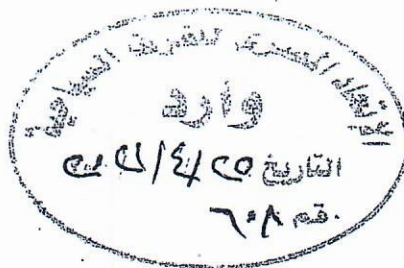 الإتحاد المصرى للغرف السياحية
وارد
التاريخ
رقم ٦٠٨